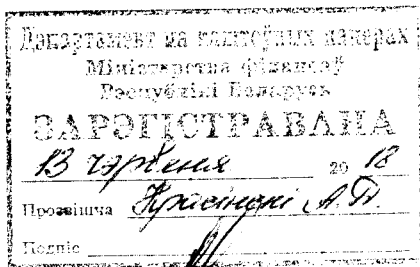 Дэпартамент па каштоўных паперах
Міністэрства фінансаў
Рэспублікі Беларусь
ЗАРЭГІСТРАВАНА
13 чэрвеня 2018
Прозвішча Красінскі А.П.
Подпіс